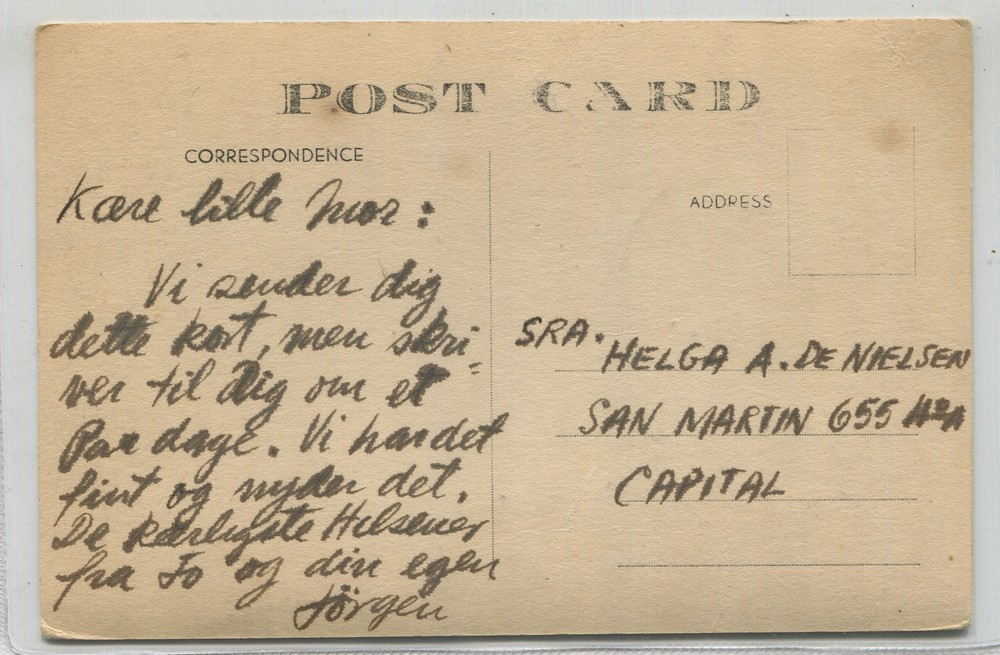 POST CARD
CORRESPONDENCE
Kære lille Mor:
Vi sender dig
dette kort, men skri=
ver til dig om et
Par dage. Vi har det
fint og nyder det.
De kærligste Hilsener
fra Jo og din egen
Jörgen
ADDRESS
SRA. HELGA A. DE NIELSEN
SAN MARTIN 655
CAPITAL